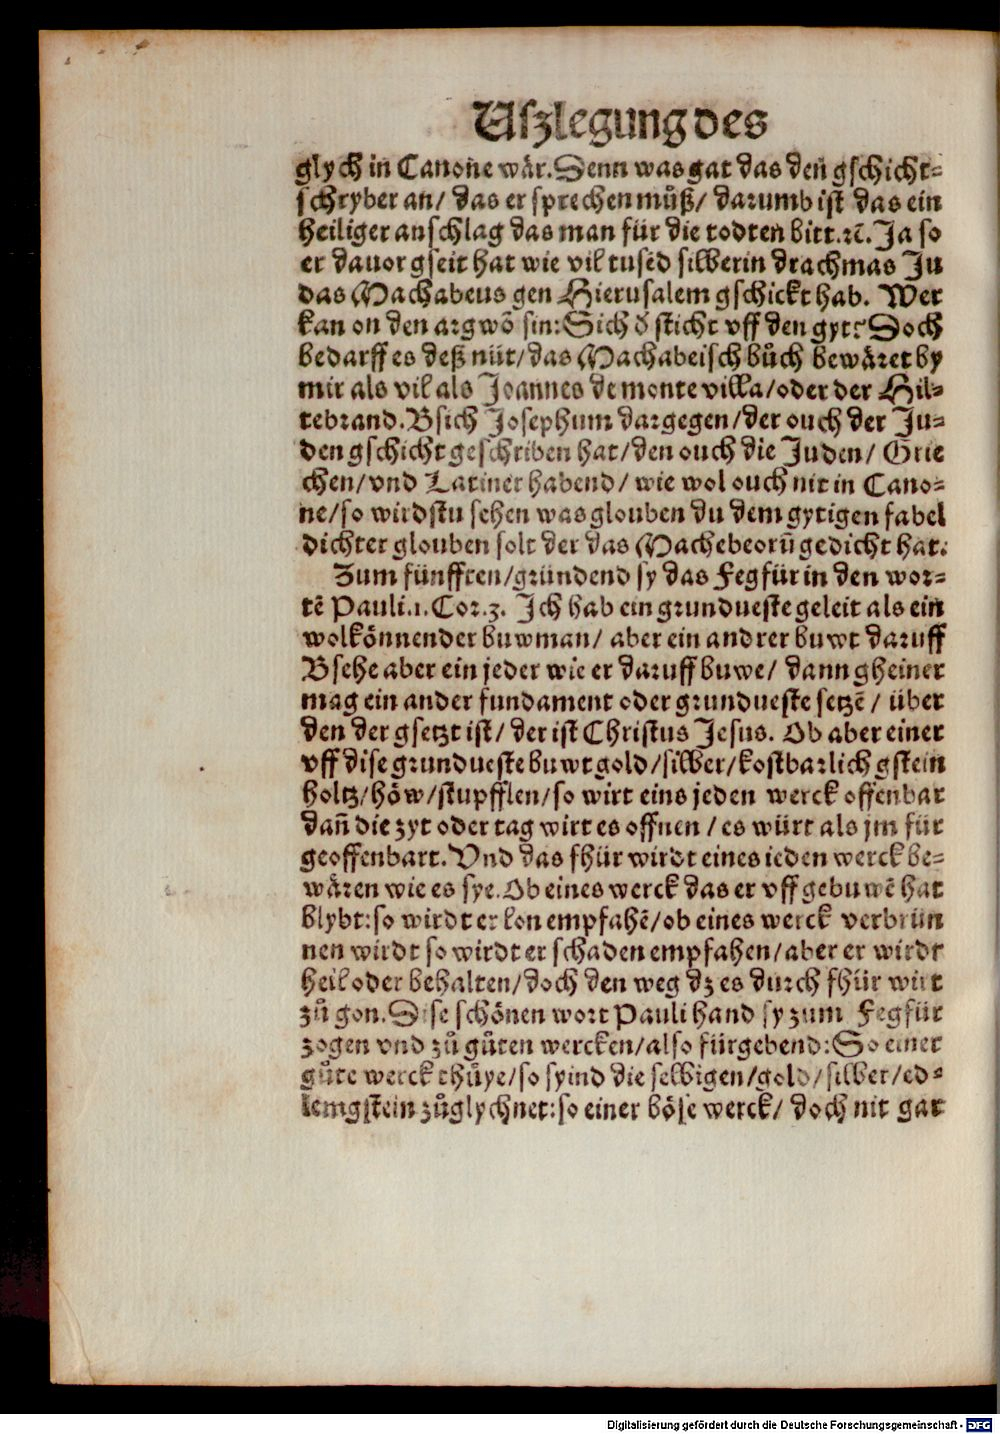 Uſzlegung des
glych in Canone wär. Denn was gat das den gſchicht⸗
ſchryber an/ das er ſprechen muͤß/ darumb iſt das ein
heiliger anſchlag das man für die todten bitt. ꝛc̃. Ja ſo
er dauor gſeit hat wie vil tuſẽd ſilberin drachmas Ju
das Machabeus gen Hieruſalem gſchickt hab. Wer
kan on den argwõ ſin: Sich d̕ ſticht vff den gyt? Doch
bedarff es deß nüt/ das Machabeiſch buͦch bewäret by
mir als vil als Joannes de monte villa/ oder der Hil⸗
tebrand. Bſich Joſephum dargegen/ der ouch der Ju⸗
den gſchicht geſchriben hat/ den ouch die Juden/ Grie
chen/ vnd Latiner habend/ wie wol ouch nit in Cano⸗
ne/ ſo wirdſtu ſehen was glouben du dem gytigen fabel
dichter glouben ſolt der das Machebeorũ gedicht hat.
Zum fünfften/ gründend ſy das Fegfür in den wor⸗
tẽ Pauli .1. Cor. 3. Ich hab ein grundueſte geleit als ein
wolkönnender buwman/ aber ein andrer buwt daruff
Bſehe aber ein jeder wie er daruff buwe/ dann gheiner
mag ein ander fundament oder grundueſte ſetzẽ/ über
den der gſetzt iſt/ der iſt Chriſtus Jeſus. Ob aber einer
vff diſe grundueſte buwt gold/ ſilber/ koſtbarlich gſtein
holtz/ höw/ ſtupfflen/ ſo wirt eins jeden werck offenbar
dañ die zyt oder tag wirt es offnen/ es würt als jm für
geoffenbart. Vnd das fhür wirdt eines ieden werck be⸗
wären wie es ſye. Ob eines werck das er vff gebuwẽ hat
blybt: ſo wirdt er lon empfahẽ/ ob eines werck verbrün
nen wirdt ſo wirdt er ſchaden empfahen/ aber er wirdt
heil oder behalten/ doch den weg dz es durch fhür wirt
zuͦ gon. Diſe ſchönen wort Pauli hand ſy zum Fegfür
zogen vnd zuͦ guͦten wercken/ alſo fürgebend: So einer
guͦte werck thuͤye/ ſo ſyind die ſelbigen/ gold/ ſilber/ ed⸗
lemgſtein zuͦglychnet: ſo einer böſe werck/ doch nit gar
Digitalisierung gefördert durch die Deutsche Forschungsgemeinschaft - DFG